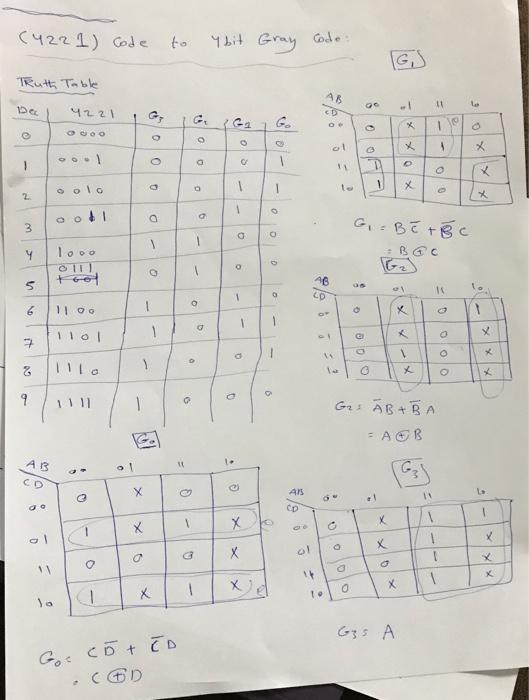 (4221) Code to 4bit Gray Code:
Truth Table
Dec 4221 G3 G2 G1 G0
0 0000 0 0 0 0
1 0001 0 0 0 1
2 0010 0 0 1 1
3 0011 0 0 1 0
4 1000 1 1 0 0
5 0111 0 1 0 0
6 1100 1 0 1 0
7 1101 1 0 1 1
8 1110 1 0 0 1
9 1111 1 0 0 0
G1
AB 00 01 11 10
CD
00 0 X 1 0
01 0 X 1 X
11 1 0 0 X
10 1 X 0 X
G1 = BC̅ + B̅C
= B⊕C
G2
AB 00 01 11 10
CD
00 0 X 0 1
01 0 X 0 X
11 0 1 0 X
10 0 X 0 X
G2 = A̅B + B̅A
= A⊕B
G0
AB 00 01 11 10
CD
00 0 X 0 0
01 1 X 1 X
11 0 0 0 X
10 1 X 1 X
G0 = CD̅ + C̅D
= C⊕D
G3
AB 00 01 11 10
CD
00 0 X 1 1
01 0 X 1 X
11 0 0 1 X
10 0 X 1 X
G3 = A